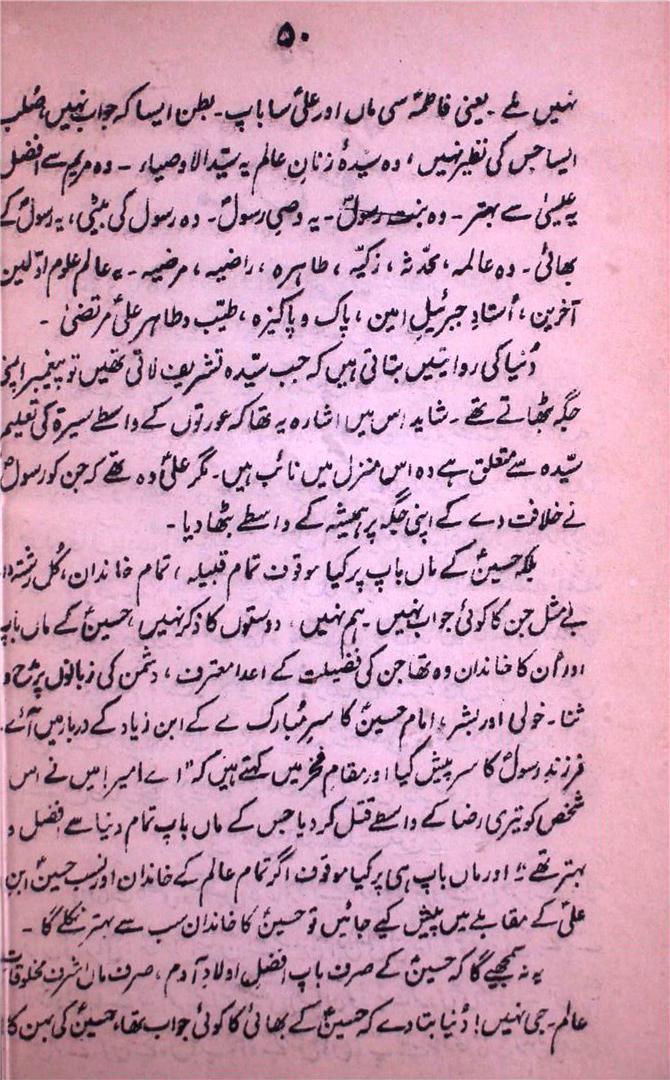 ۵۰
نہیں ملے ۔ یعنی فاطمہؑ سی ماں اور علیؑ سا باپ ۔ بطن ایسا کہ جواب نہیں، صُلب
ایسا جس کی نظیر نہیں، وہ سیدۂ زنانِ عالم یہ سیّد الاوصیاء ۔ وہ مریم سے افضل
یہ عیسیٰ سے بہتر ۔ وہ بنت رسولؐ ۔ یہ وصی رسولؐ ۔ وہ رسول کی بیٹی، یہ رسولؐ کے
بھائی ۔ وہ عالمہ، محدّثہ، زکیّہ، طاہرہ، راضیہ، مرضیہ ۔ یہ عالم علومِ اوّلین
آخرین، اُستادِ جبرئیلِ امین، پاک و پاکیزہ، طیّب و طاہر علیؑ مرتضیٰ ۔
دُنیا کی روایتیں بتاتی ہیں کہ جب سیّدہ تشریف لاتی تھیں تو پیغمبر اپنی
جگہ بٹھاتے تھے ۔ شاید اس میں اشارہ یہ تھا کہ عورتوں کے واسطے سیرۃ کی تعلیم
سیّدہ سے متعلق ہے وہ اس منزل میں نائب ہیں ۔ مگر علیؑ وہ تھے کہ جن کو رسولؐ
نے خلافت دے کے اپنی جگہ پر ہمیشہ کے واسطے بٹھا دیا ۔
بلکہ حسینؑ کے ماں باپ پر کیا موقوف تمام قبیلہ، تمام خاندان، کُل رشتہ دار
بے مثل جن کا کوئی جواب نہیں ۔ ہم نہیں، دوستوں کا ذکر نہیں، حسینؑ کے ماں باپ
اور اُن کا خاندان وہ تھا جن کی فضیلت کے اعدا معترف، دشمن کی زبانوں پر مدح و
ثنا ۔ خولی اور بشر، امام حسینؑ کا سرِ مُبارک لے کے ابن زیاد کے دربار میں آئے۔
فرزندِ رسولؐ کا سر پیش کیا اور مقامِ فخر میں کہتے ہیں کہ " اے امیر! میں نے اس
شخص کو تیری رضا کے واسطے قتل کر دیا جس کے ماں باپ تمام دنیا سے افضل و
بہتر تھے" اور ماں باپ ہی پر کیا موقوف اگر تمام عالم کے خاندان اور نسب حسینؑ ابنِ
علیؑ کے مقابلے میں پیش کیے جائیں تو حسینؑ کا خاندان سب سے بہتر نکلے گا ۔
یہ نہ سمجھیے گا کہ حسینؑ کے صرف باپ افضلِ اولادِ آدم، صرف ماں اشرفِ مخلوقات
عالم ۔ جی نہیں! دُنیا بتا دے کہ حسینؑ کے بھائی کا کوئی جواب تھا، حسینؑ کی بہن کا